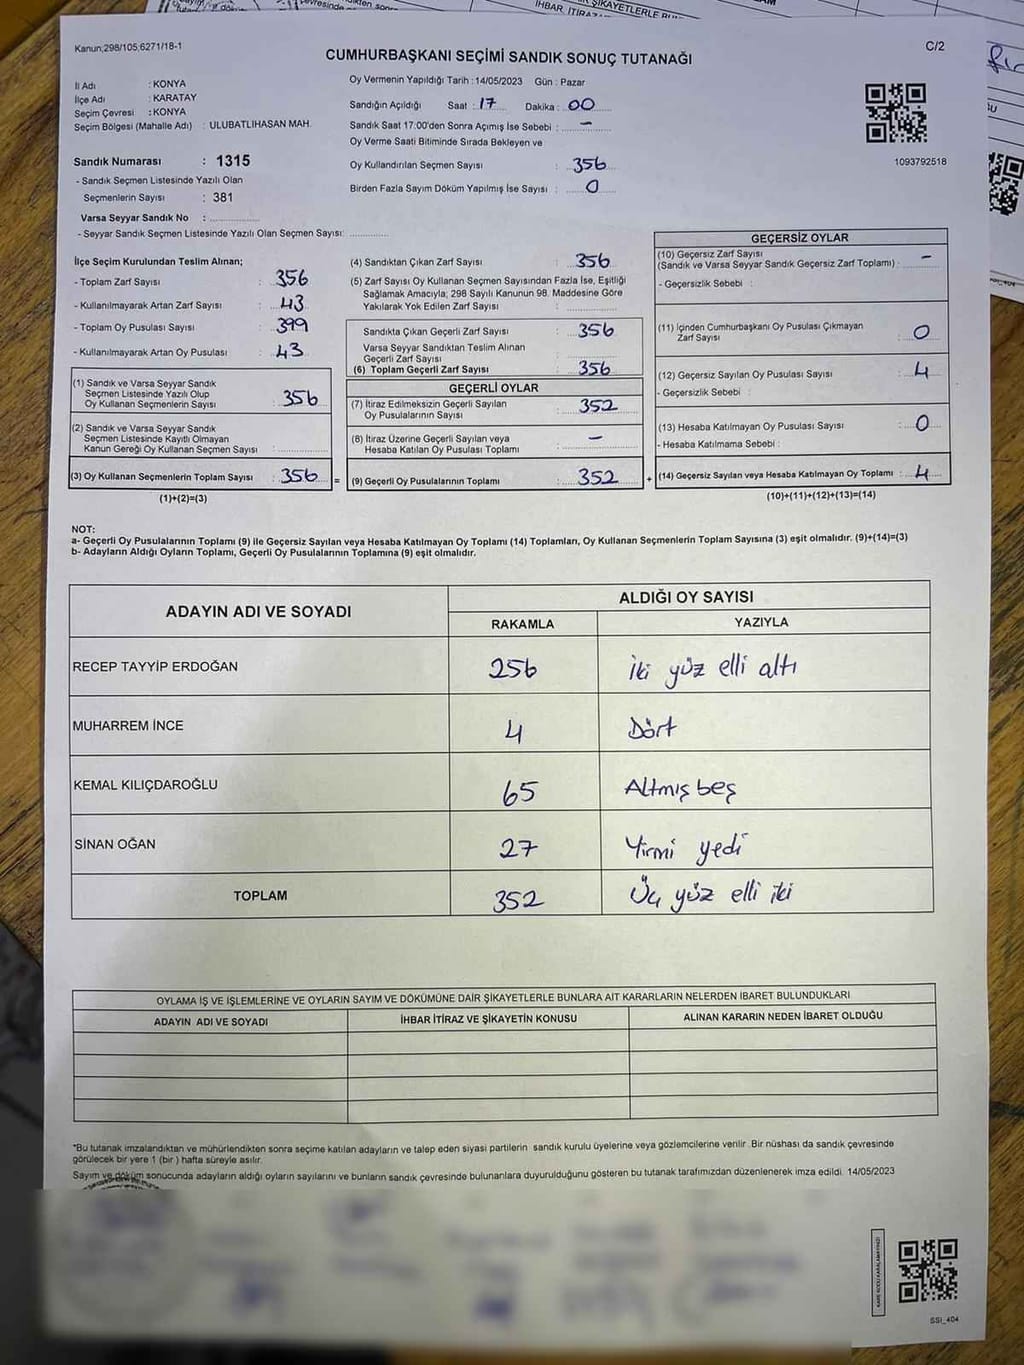 Kanun;298/105;6271/18-1
C/2
CUMHURBAŞKANI SEÇİMİ SANDIK SONUÇ TUTANAĞI
İl Adı : KONYA
İlçe Adı : KARATAY
Seçim Çevresi : KONYA
Seçim Bölgesi (Mahalle Adı) : ULUBATLIHASAN MAH.
Sandık Numarası : 1315
- Sandık Seçmen Listesinde Yazılı Olan
Seçmenlerin Sayısı : 381
Varsa Seyyar Sandık No : ............
- Seyyar Sandık Seçmen Listesinde Yazılı Olan Seçmen Sayısı: ............
Oy Vermenin Yapıldığı Tarih : 14/05/2023 Gün : Pazar
Sandığın Açıldığı Saat : 17 Dakika : 00
Sandık Saat 17:00'den Sonra Açımış İse Sebebi : -
Oy Verme Saati Bitiminde Sırada Bekleyen ve
Oy Kullandırılan Seçmen Sayısı : 356
Birden Fazla Sayım Döküm Yapılmış İse Sayısı : 0
1093792518
İlçe Seçim Kurulundan Teslim Alınan;
- Toplam Zarf Sayısı : 356
- Kullanılmayarak Artan Zarf Sayısı : 43
- Toplam Oy Pusulası Sayısı : 399
- Kullanılmayarak Artan Oy Pusulası : 43
(1) Sandık ve Varsa Seyyar Sandık
Seçmen Listesinde Yazılı Olup
Oy Kullanan Seçmenlerin Sayısı : 356
(2) Sandık ve Varsa Seyyar Sandık
Seçmen Listesinde Kayıtlı Olmayan
Kanun Gereği Oy Kullanan Seçmen Sayısı : ............
(3) Oy Kullanan Seçmenlerin Toplam Sayısı : 356 =
(1)+(2)=(3)
(4) Sandıktan Çıkan Zarf Sayısı : 356
(5) Zarf Sayısı Oy Kullanan Seçmen Sayısından Fazla İse, Eşitliği
Sağlamak Amacıyla; 298 Sayılı Kanunun 98. Maddesine Göre
Yakılarak Yok Edilen Zarf Sayısı : ............
Sandıkta Çıkan Geçerli Zarf Sayısı : 356
Varsa Seyyar Sandıktan Teslim Alınan
Geçerli Zarf Sayısı : ............
(6) Toplam Geçerli Zarf Sayısı : 356
GEÇERLİ OYLAR
(7) İtiraz Edilmeksizin Geçerli Sayılan
Oy Pusulalarının Sayısı : 352
(8) İtiraz Üzerine Geçerli Sayılan veya
Hesaba Katılan Oy Pusulası Toplamı : -
(9) Geçerli Oy Pusulalarının Toplamı : 352 +
GEÇERSİZ OYLAR
(10) Geçersiz Zarf Sayısı
(Sandık ve Varsa Seyyar Sandık Geçersiz Zarf Toplamı) : -
- Geçersizlik Sebebi :
(11) İçinden Cumhurbaşkanı Oy Pusulası Çıkmayan
Zarf Sayısı : 0
(12) Geçersiz Sayılan Oy Pusulası Sayısı : 4
- Geçersizlik Sebebi :
(13) Hesaba Katılmayan Oy Pusulası Sayısı : 0
- Hesaba Katılmama Sebebi :
(14) Geçersiz Sayılan veya Hesaba Katılmayan Oy Toplamı : 4
(10)+(11)+(12)+(13)=(14)
NOT:
a- Geçerli Oy Pusulalarının Toplamı (9) ile Geçersiz Sayılan veya Hesaba Katılmayan Oy Toplamı (14) Toplamları, Oy Kullanan Seçmenlerin Toplam Sayısına (3) eşit olmalıdır. (9)+(14)=(3)
b- Adayların Aldığı Oyların Toplamı, Geçerli Oy Pusulalarının Toplamına (9) eşit olmalıdır.
ADAYIN ADI VE SOYADI ALDIĞI OY SAYISI
RAKAMLA YAZIYLA
RECEP TAYYİP ERDOĞAN 256 iki yüz elli altı
MUHARREM İNCE 4 Dört
KEMAL KILIÇDAROĞLU 65 Altmış beş
SİNAN OĞAN 27 Yirmi yedi
TOPLAM 352 Üç yüz elli iki
OYLAMA İŞ VE İŞLEMLERİNE VE OYLARIN SAYIM VE DÖKÜMÜNE DAİR ŞİKAYETLERLE BUNLARA AİT KARARLARIN NELERDEN İBARET BULUNDUKLARI
ADAYIN ADI VE SOYADI İHBAR İTİRAZ VE ŞİKAYETİN KONUSU ALINAN KARARIN NEDEN İBARET OLDUĞU
*Bu tutanak imzalandıktan ve mühürlendikten sonra seçime katılan adayların ve talep eden siyasi partilerin sandık kurulu üyelerine veya gözlemcilerine verilir. Bir nüshası da sandık çevresinde
görülecek bir yere 1 (bir) hafta süreyle asılır.
Sayım ve döküm sonucunda adayların aldığı oyların sayılarını ve bunların sandık çevresinde bulunanlara duyurulduğunu gösteren bu tutanak tarafımızdan düzenlenerek imza edildi. 14/05/2023
SSI_404